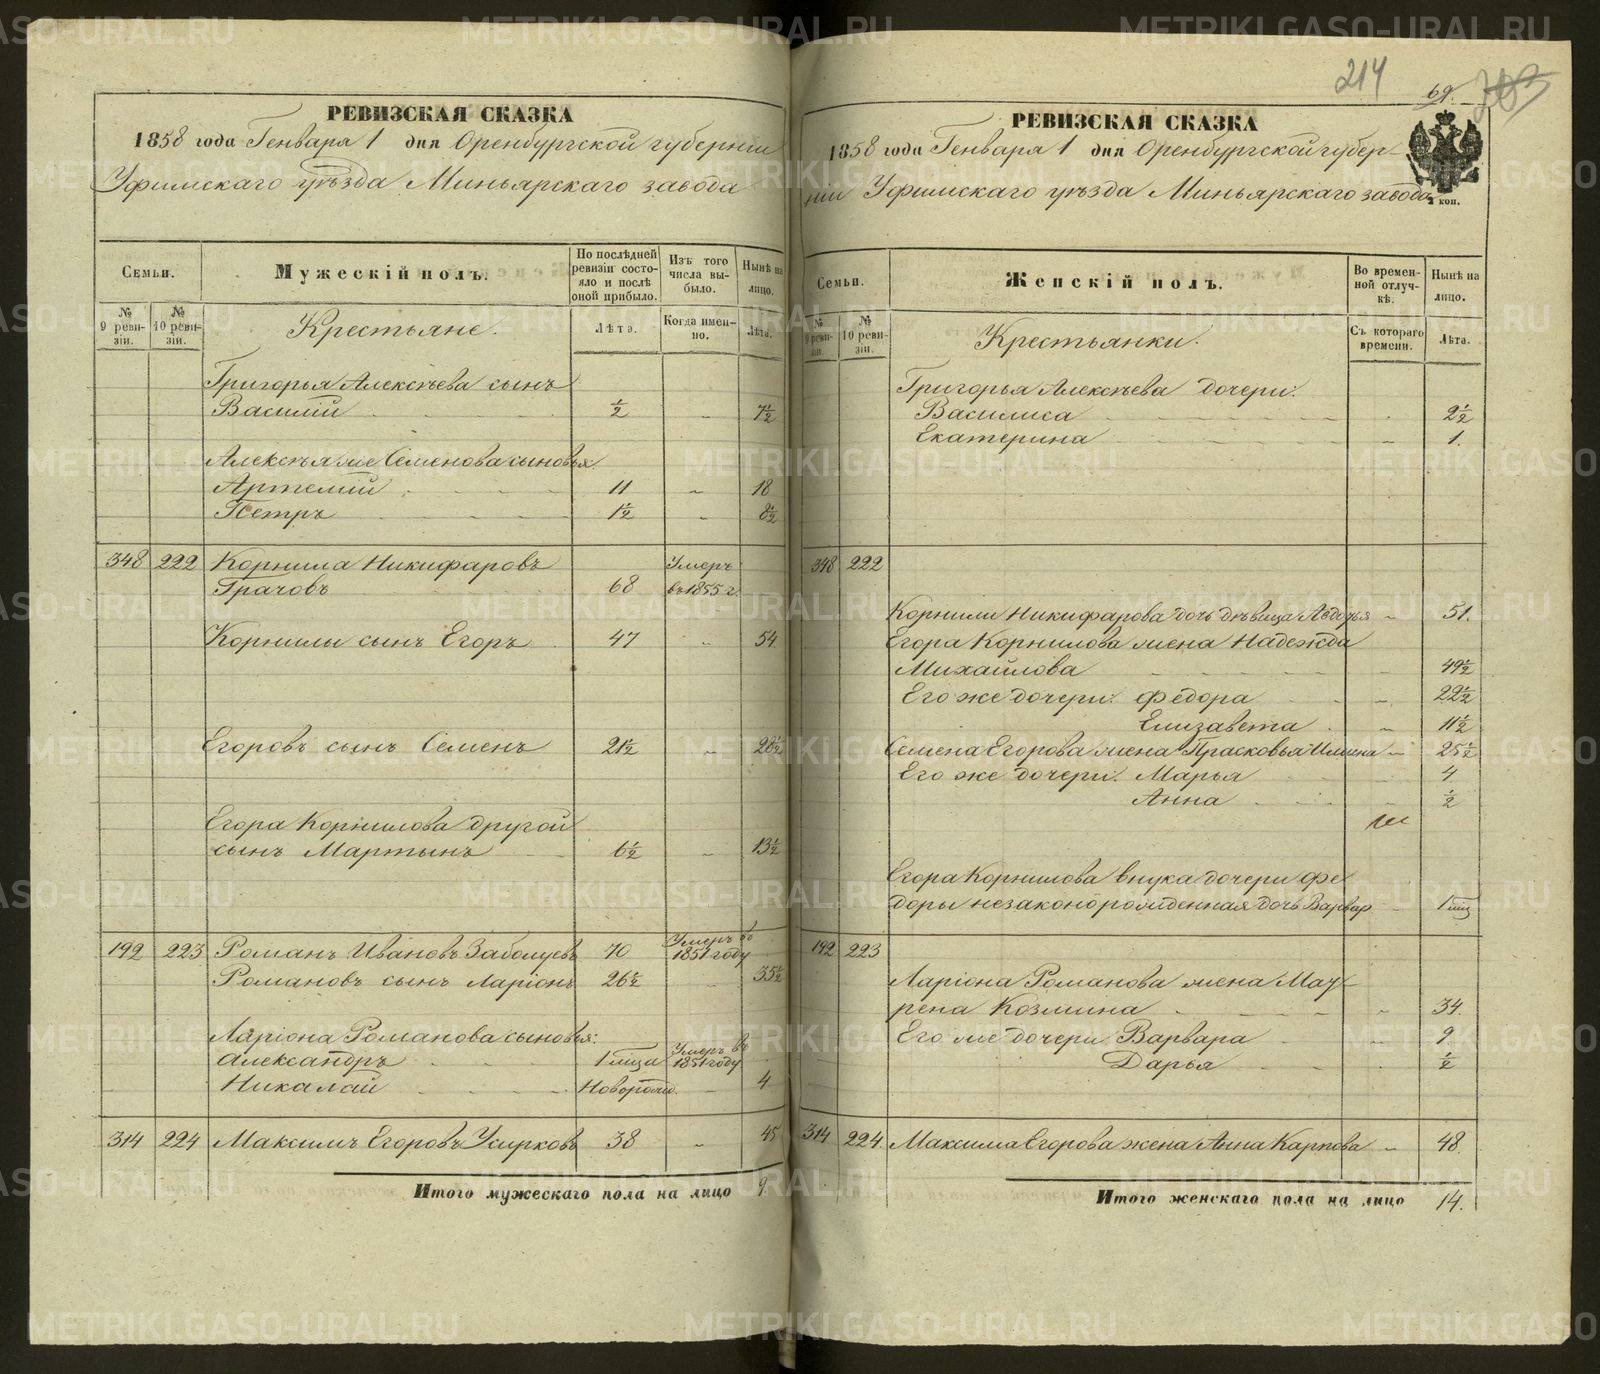 РЕВИЗСКАЯ СКАЗКА
1858 года Генваря 1 дня Оренбургской губернiи
Уфимскаго уѣзда Миньярскаго завода
Семьи.
Мужескiй полъ.
По послѣдней ревизiи состояло и послѣ оной прибыло.
Изъ того числа выбыло.
Нынѣ на лицо.
№ 9 ревизiи.
№ 10 ревизiи.
Крестьяне.
Лѣта.
Когда именно.
Лѣта.
Григорья Алексѣева сынъ
Василiй ½ „ 7½
Алексѣя же Семенова сыновья
Артемiй 11 „ 18
Петръ 1½ „ 8½
348 222 Корнила Никифаровъ Умеръ
Грачовъ 68 въ 1855 г
Корнилы сынъ Егоръ 47 „ 54
Егоровъ сынъ Семенъ 21½ „ 28½
Егора Корнилова другой
сынъ Мартынъ 6½ „ 13½
192 223 Романъ Ивановъ Заболуевъ 70 Умеръ въ 1851 году
Романовъ сынъ Ларiонъ 26½ 35½
Ларiона Романова сыновья:
Александръ 1 мѣца Умеръ въ 1851 году
Никалай Новорожд. 4
314 224 Максимъ Егоровъ Усирковъ 38 „ 45
Итого мужескаго пола на лицо 9.
214
69.
303
РЕВИЗСКАЯ СКАЗКА
1858 года Генваря 1 дня Оренбургской губер-
нiи Уфимскаго уѣзда Миньярскаго завода
коп.
Семьи.
Женскiй полъ.
Во временной отлучкѣ.
Нынѣ на лицо.
№ 9 ревизiи.
№ 10 ревизiи.
Крестьянки.
Съ котораго времени.
Лѣта.
Григорья Алексѣева дочери:
Василиса „ 2½
Екатерина „ 1.
348 222
Корнилы Никифарова дочь дѣвица Авдотья „ 51.
Егора Корнилова жена Надежда
Михайлова 49½
Его же дочери: Федора „ 22½
Елизавета „ 11½
Семена Егорова жена Прасковья „ 25½
Его же дочери: Марья 4
Анна „ ½
Егора Корнилова внука дочери Фе-
доры незаконорожденная дочь Варвар 1 мѣц
192 223
Ларiона Романова жена Мау-
рена Козмина „ 34.
Его же дочери Варвара „ 9
Дарья ½
314 224 Максима Егорова жена Анна Карпова „ 48.
Итого женскаго пола на лицо 14.
METRIKI.GASO-URAL.RU